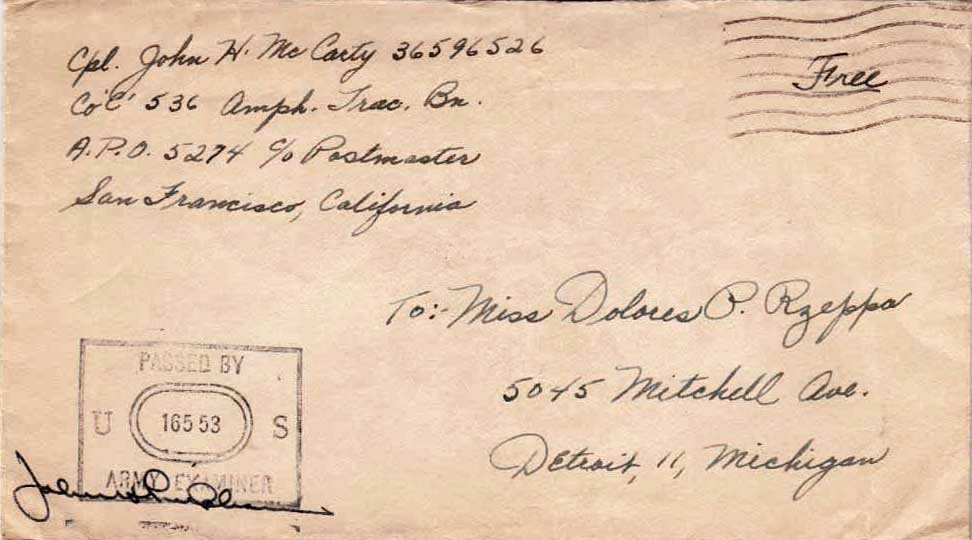 Cpl. John H. McCarty 36596526
Co "C" 536 Amph. Trac. Bn.
A.P.O. 5274 c/o Postmaster
San Francisco, California
Free
To:- Miss Dolores P. Rzeppa
5045 Mitchell Ave.
Detroit, 11, Michigan
PASSED BY
U 16553 S
ARMY EXAMINER
John